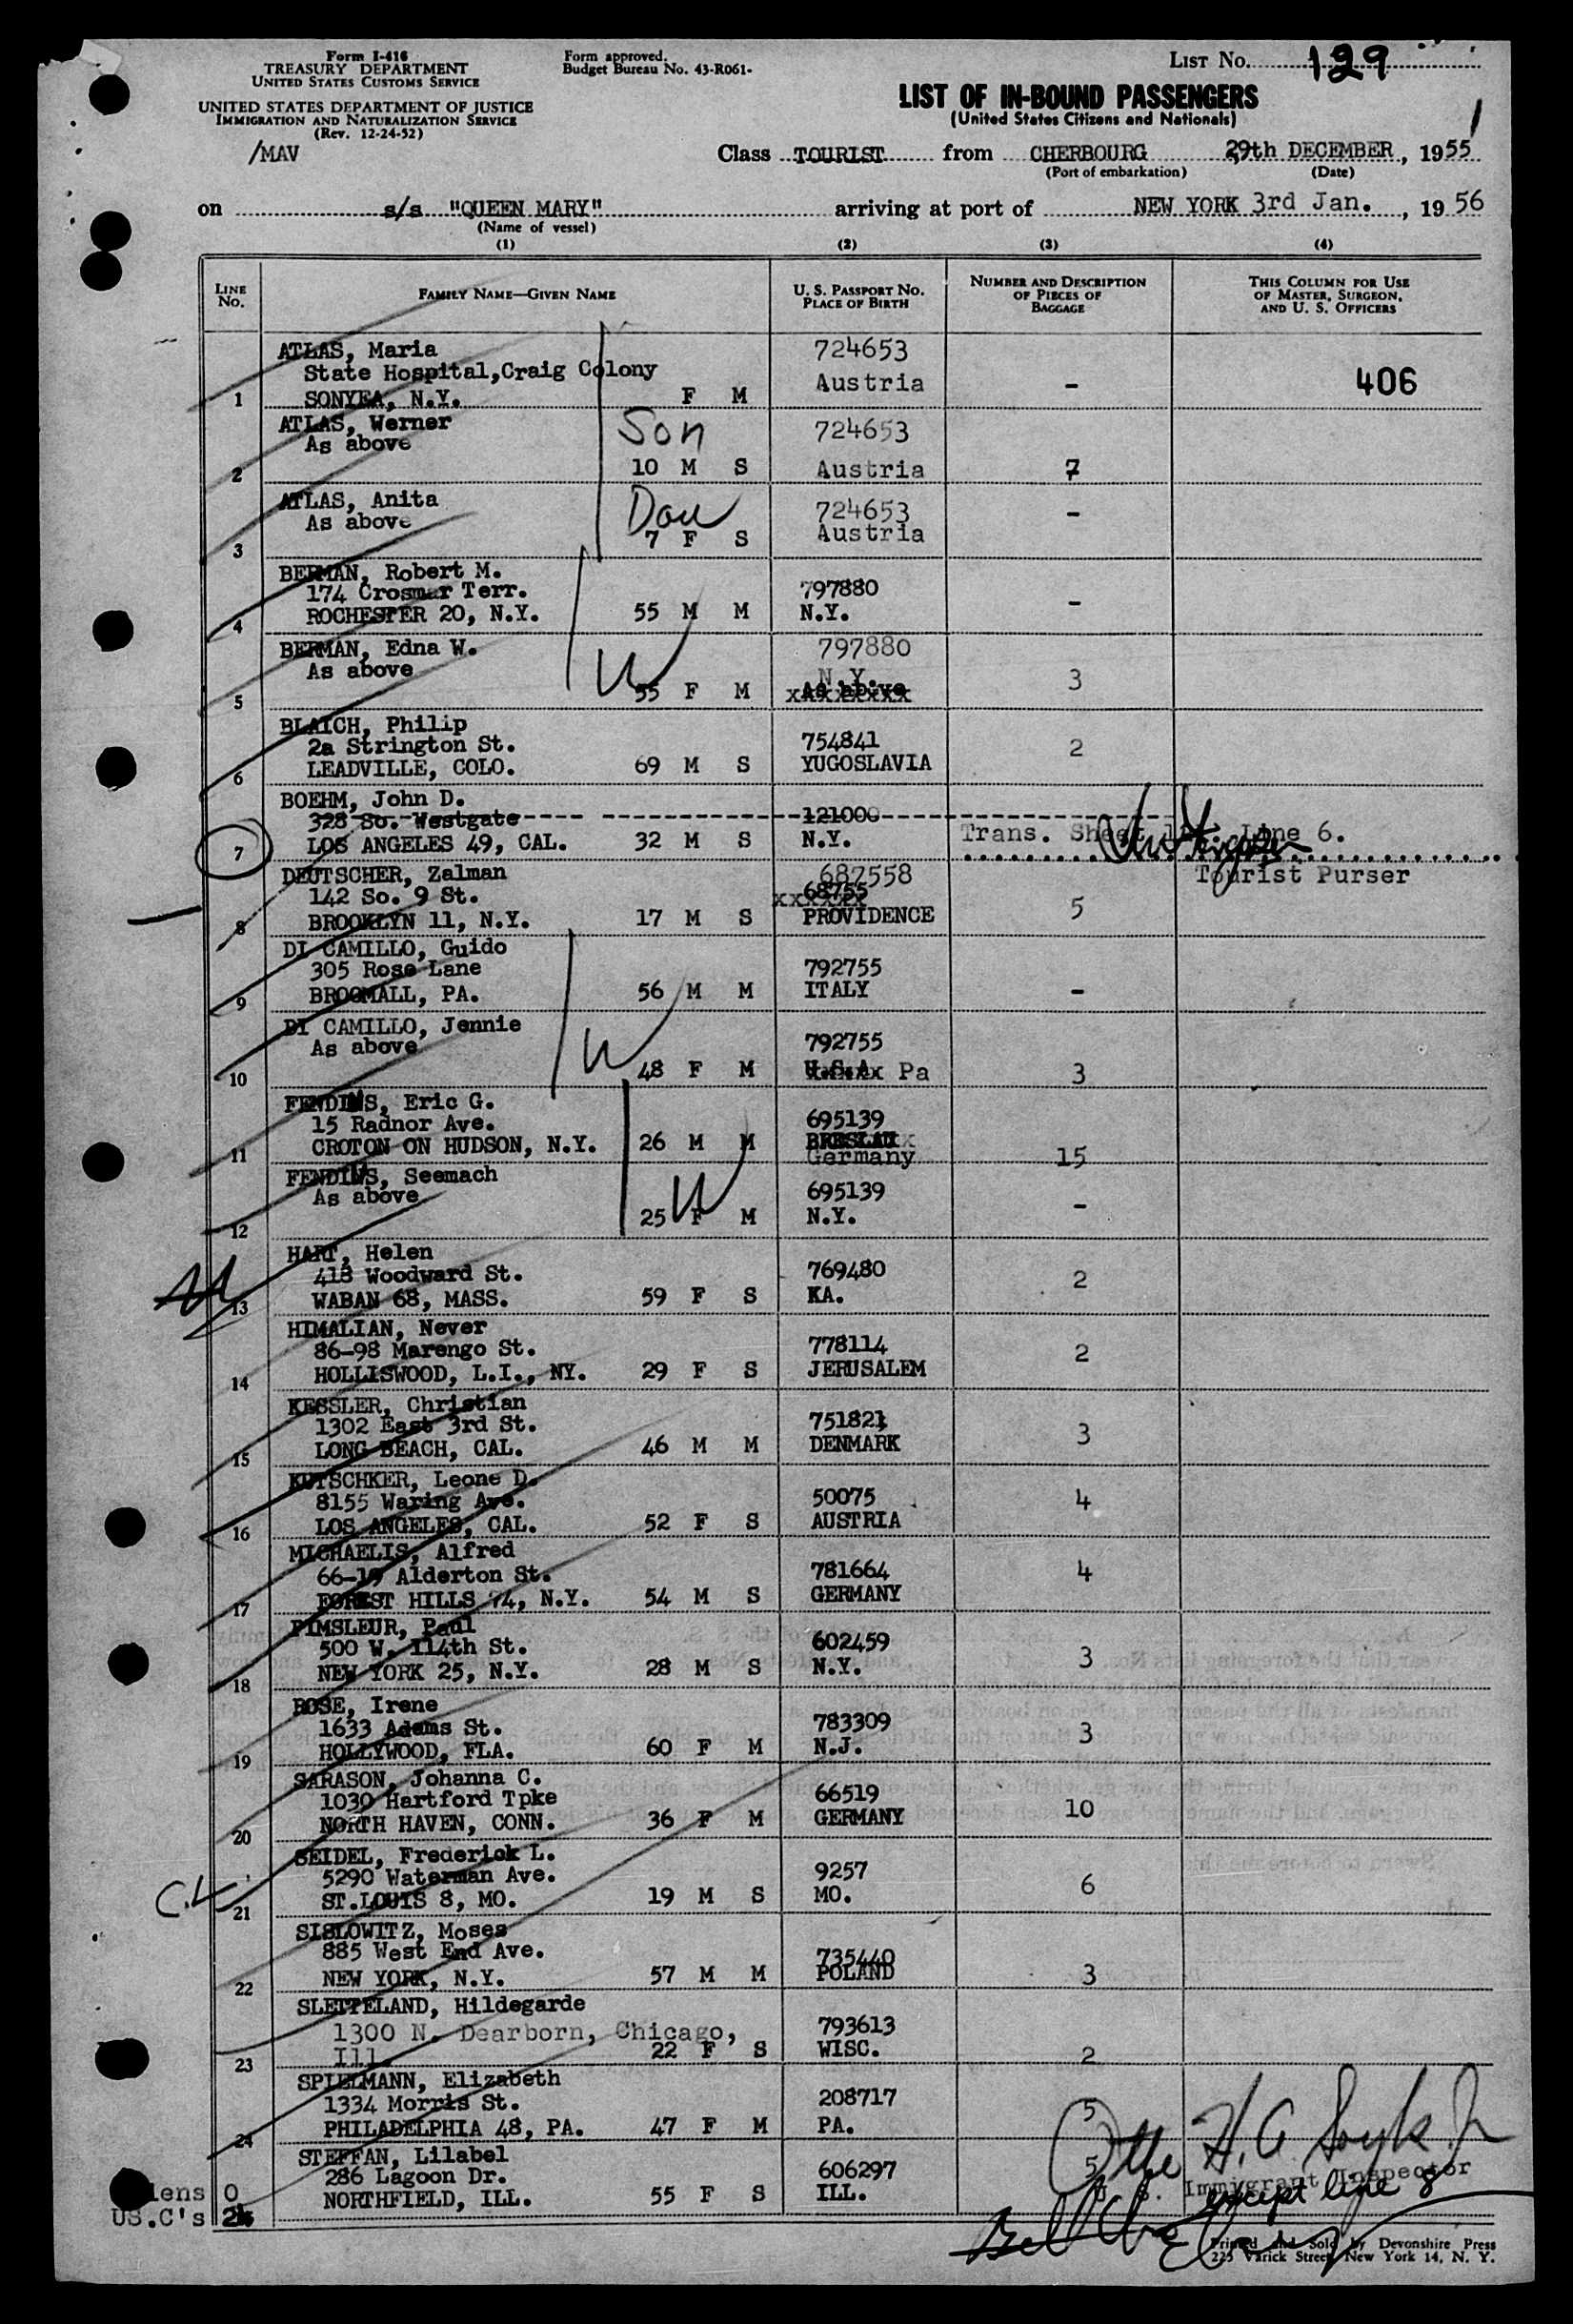 Form I-416
TREASURY DEPARTMENT
UNITED STATES CUSTOMS SERVICE
UNITED STATES DEPARTMENT OF JUSTICE
IMMIGRATION AND NATURALIZATION SERVICE
(Rev. 12-24-52)
/MAV
Form approved.
Budget Bureau No. 43-R061-
LIST NO. 129
LIST OF IN-BOUND PASSENGERS
(United States Citizens and Nationals)
Class TOURIST from CHERBOURG 29th DECEMBER, 1955
(Port of embarkation) (Date)
on s/s "QUEEN MARY" arriving at port of NEW YORK 3rd Jan., 1956
(Name of vessel)
(1) (2) (3) (4)
LINE NO.
FAMILY NAME—GIVEN NAME
U. S. PASSPORT NO.
PLACE OF BIRTH
NUMBER AND DESCRIPTION
OF PIECES OF
BAGGAGE
THIS COLUMN FOR USE
OF MASTER, SURGEON,
AND U. S. OFFICERS
ATLAS, Maria 724653
State Hospital,Craig Colony Austria - 406
1 SONYEA, N.Y. F M
ATLAS, Werner Son 724653
As above
2 10 M S Austria 7
ATLAS, Anita Dau 724653 -
As above Austria
3 7 F S
BERMAN, Robert M. 797880
174 Crosmar Terr. -
4 ROCHESTER 20, N.Y. 55 M M N.Y.
BERMAN, Edna W. 797880
As above W N.Y. 3
5 55 F M As above
BLAICH, Philip 754841
2a Strington St. 2
6 LEADVILLE, COLO. 69 M S YUGOSLAVIA
BOEHM, John D. 121000
328 So. Westgate Trans. Sheet Line 6.
7 LOS ANGELES 49, CAL. 32 M S N.Y.
Tourist Purser
DEUTSCHER, Zalman 687558
142 So. 9 St. 68755 5
8 BROOKLYN 11, N.Y. 17 M S PROVIDENCE
DI CAMILLO, Guido 792755
305 Rose Lane -
9 BROOMALL, PA. 56 M M ITALY
DI CAMILLO, Jennie 792755
As above W
10 48 F M U.S.A. Pa 3
FENDIUS, Eric G. 695139
15 Radnor Ave. BRESLAU
11 CROTON ON HUDSON, N.Y. 26 M M Germany 15
FENDIUS, Seemach 695139
As above W -
12 25 F M N.Y.
HART, Helen 769480
418 Woodward St. 2
13 WABAN 68, MASS. 59 F S KA.
HIMALIAN, Never 778114
86-98 Marengo St. 2
14 HOLLISWOOD, L.I., NY. 29 F S JERUSALEM
KESSLER, Christian 751821
1302 East 3rd St. 3
15 LONG BEACH, CAL. 46 M M DENMARK
KUTSCHKER, Leone D. 50075
8155 Waring Ave. 4
16 LOS ANGELES, CAL. 52 F S AUSTRIA
MICHAELIS, Alfred 781664
66-10 Alderton St. 4
17 FOREST HILLS 74, N.Y. 54 M S GERMANY
PIMSLEUR, Paul 602459
500 W. 114th St. 3
18 NEW YORK 25, N.Y. 28 M S N.Y.
ROSE, Irene 783309
1633 Adams St. 3
19 HOLLYWOOD, FLA. 60 F M N.J.
SARASON, Johanna C. 66519
1030 Hartford Tpke 10
20 NORTH HAVEN, CONN. 36 F M GERMANY
SEIDEL, Frederick L. 9257
C.L. 5290 Waterman Ave. 6
21 ST.LOUIS 8, MO. 19 M S MO.
SISLOWITZ, Moses 735440
885 West End Ave. POLAND
22 NEW YORK, N.Y. 57 M M 3
SLETTELAND, Hildegarde 793613
1300 N. Dearborn, Chicago,
23 Ill. 22 F S WISC. 2
SPIELMANN, Elizabeth 208717
1334 Morris St. 5
24 PHILADELPHIA 48, PA. 47 F M PA.
STEFFAN, Lilabel 606297
286 Lagoon Dr. 5
NORTHFIELD, ILL. 55 F S ILL.
Immigrant Inspector
except line 8
lens 0
US.C's
Printed and Sold by Devonshire Press
225 Varick Street, New York 14, N. Y.